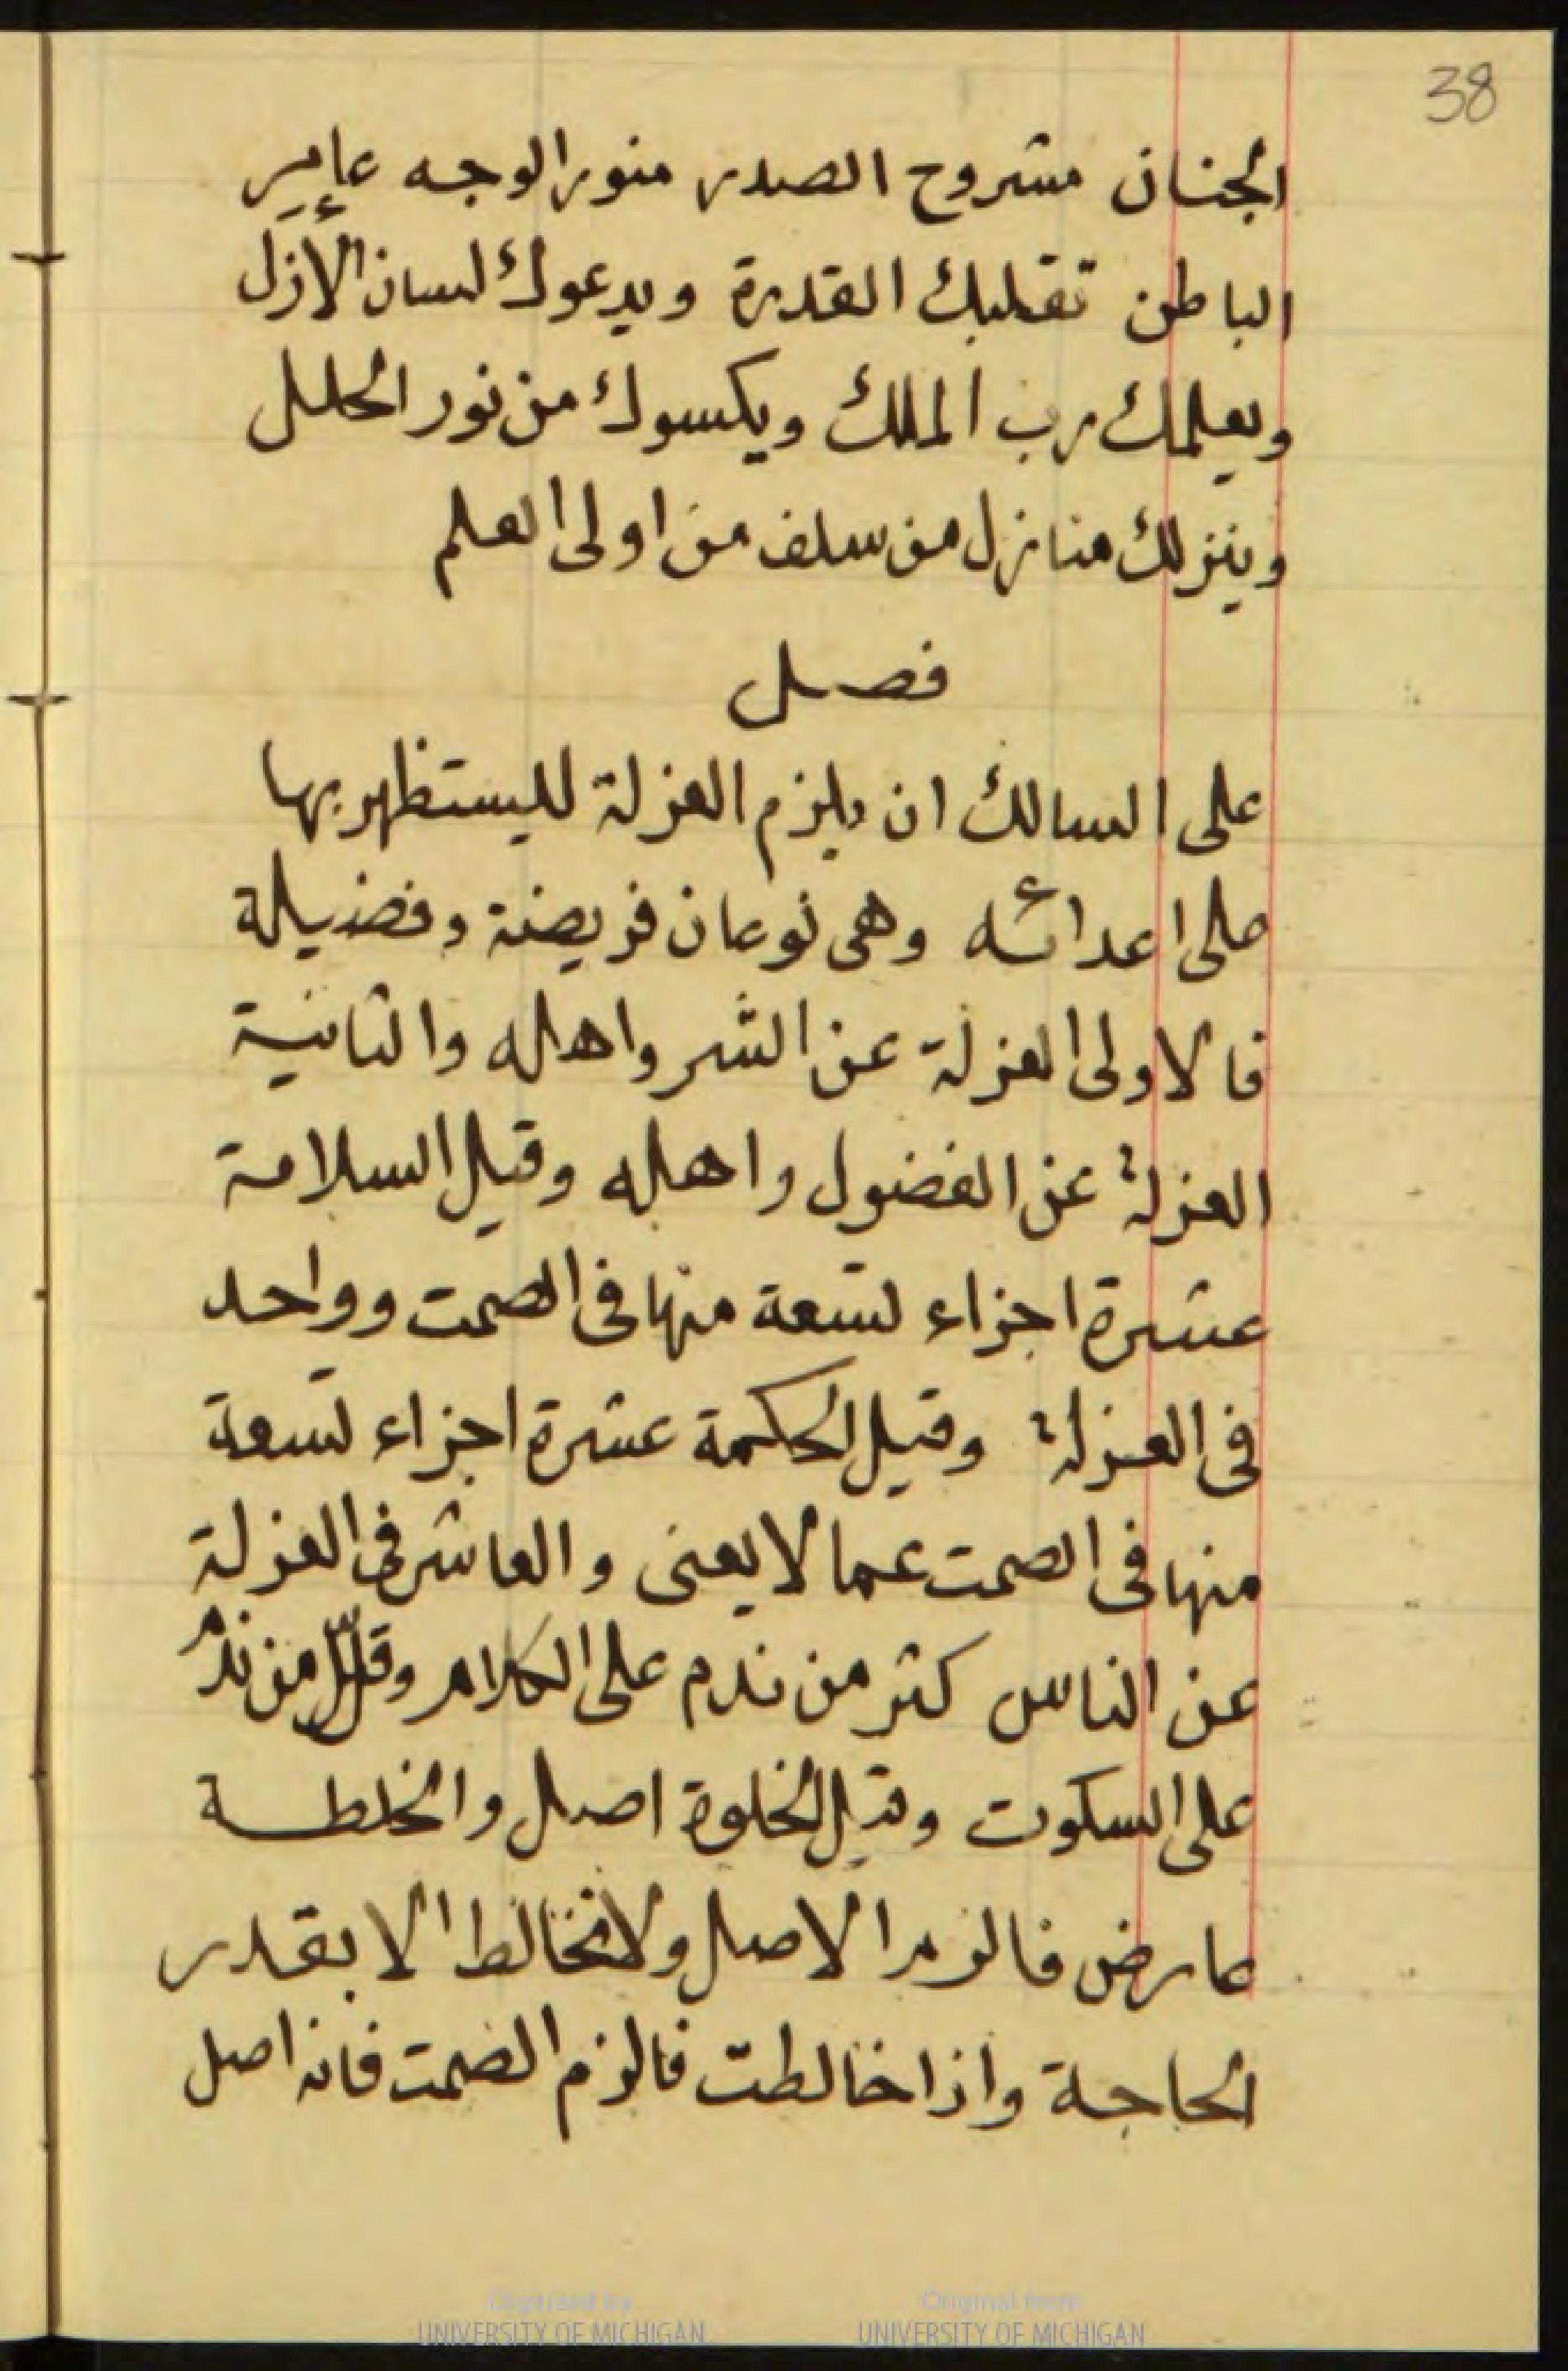 38
الجنان مشروح الصدر منور الوجه عامر
الباطن تقلبك القدرة ويدعوك لسان الازل
ويعلمك رب الملك ويكسوك من نور الحلل
وينزلك منازل من سلف من اولى العلم
فصل
على السالك ان يلزم العزلة لليستظهر بها
على اعدائه وهى نوعان فريضة وفضيلة
فالاولى العزلة عن الشر واهله والثانية
العزلة عن الفضول واهله وقيل السلامة
عشرة اجزاء تسعة منها فى الصمت وواحد
فى العزلة وقيل الحكمة عشرة اجزاء تسعة
منها فى الصمت عما لا يعنى والعاشر فى العزلة
عن الناس كثر من ندم على الكلام وقلّ من ندم
على السكوت وقيل الخلوة اصل والخلطة
عارض فالزم الاصل ولا تخالط الا بقدر
الحاجة واذا خالطت فالزم الصمت فانه اصل
Digitized by
UNIVERSITY OF MICHIGAN
Original from
UNIVERSITY OF MICHIGAN